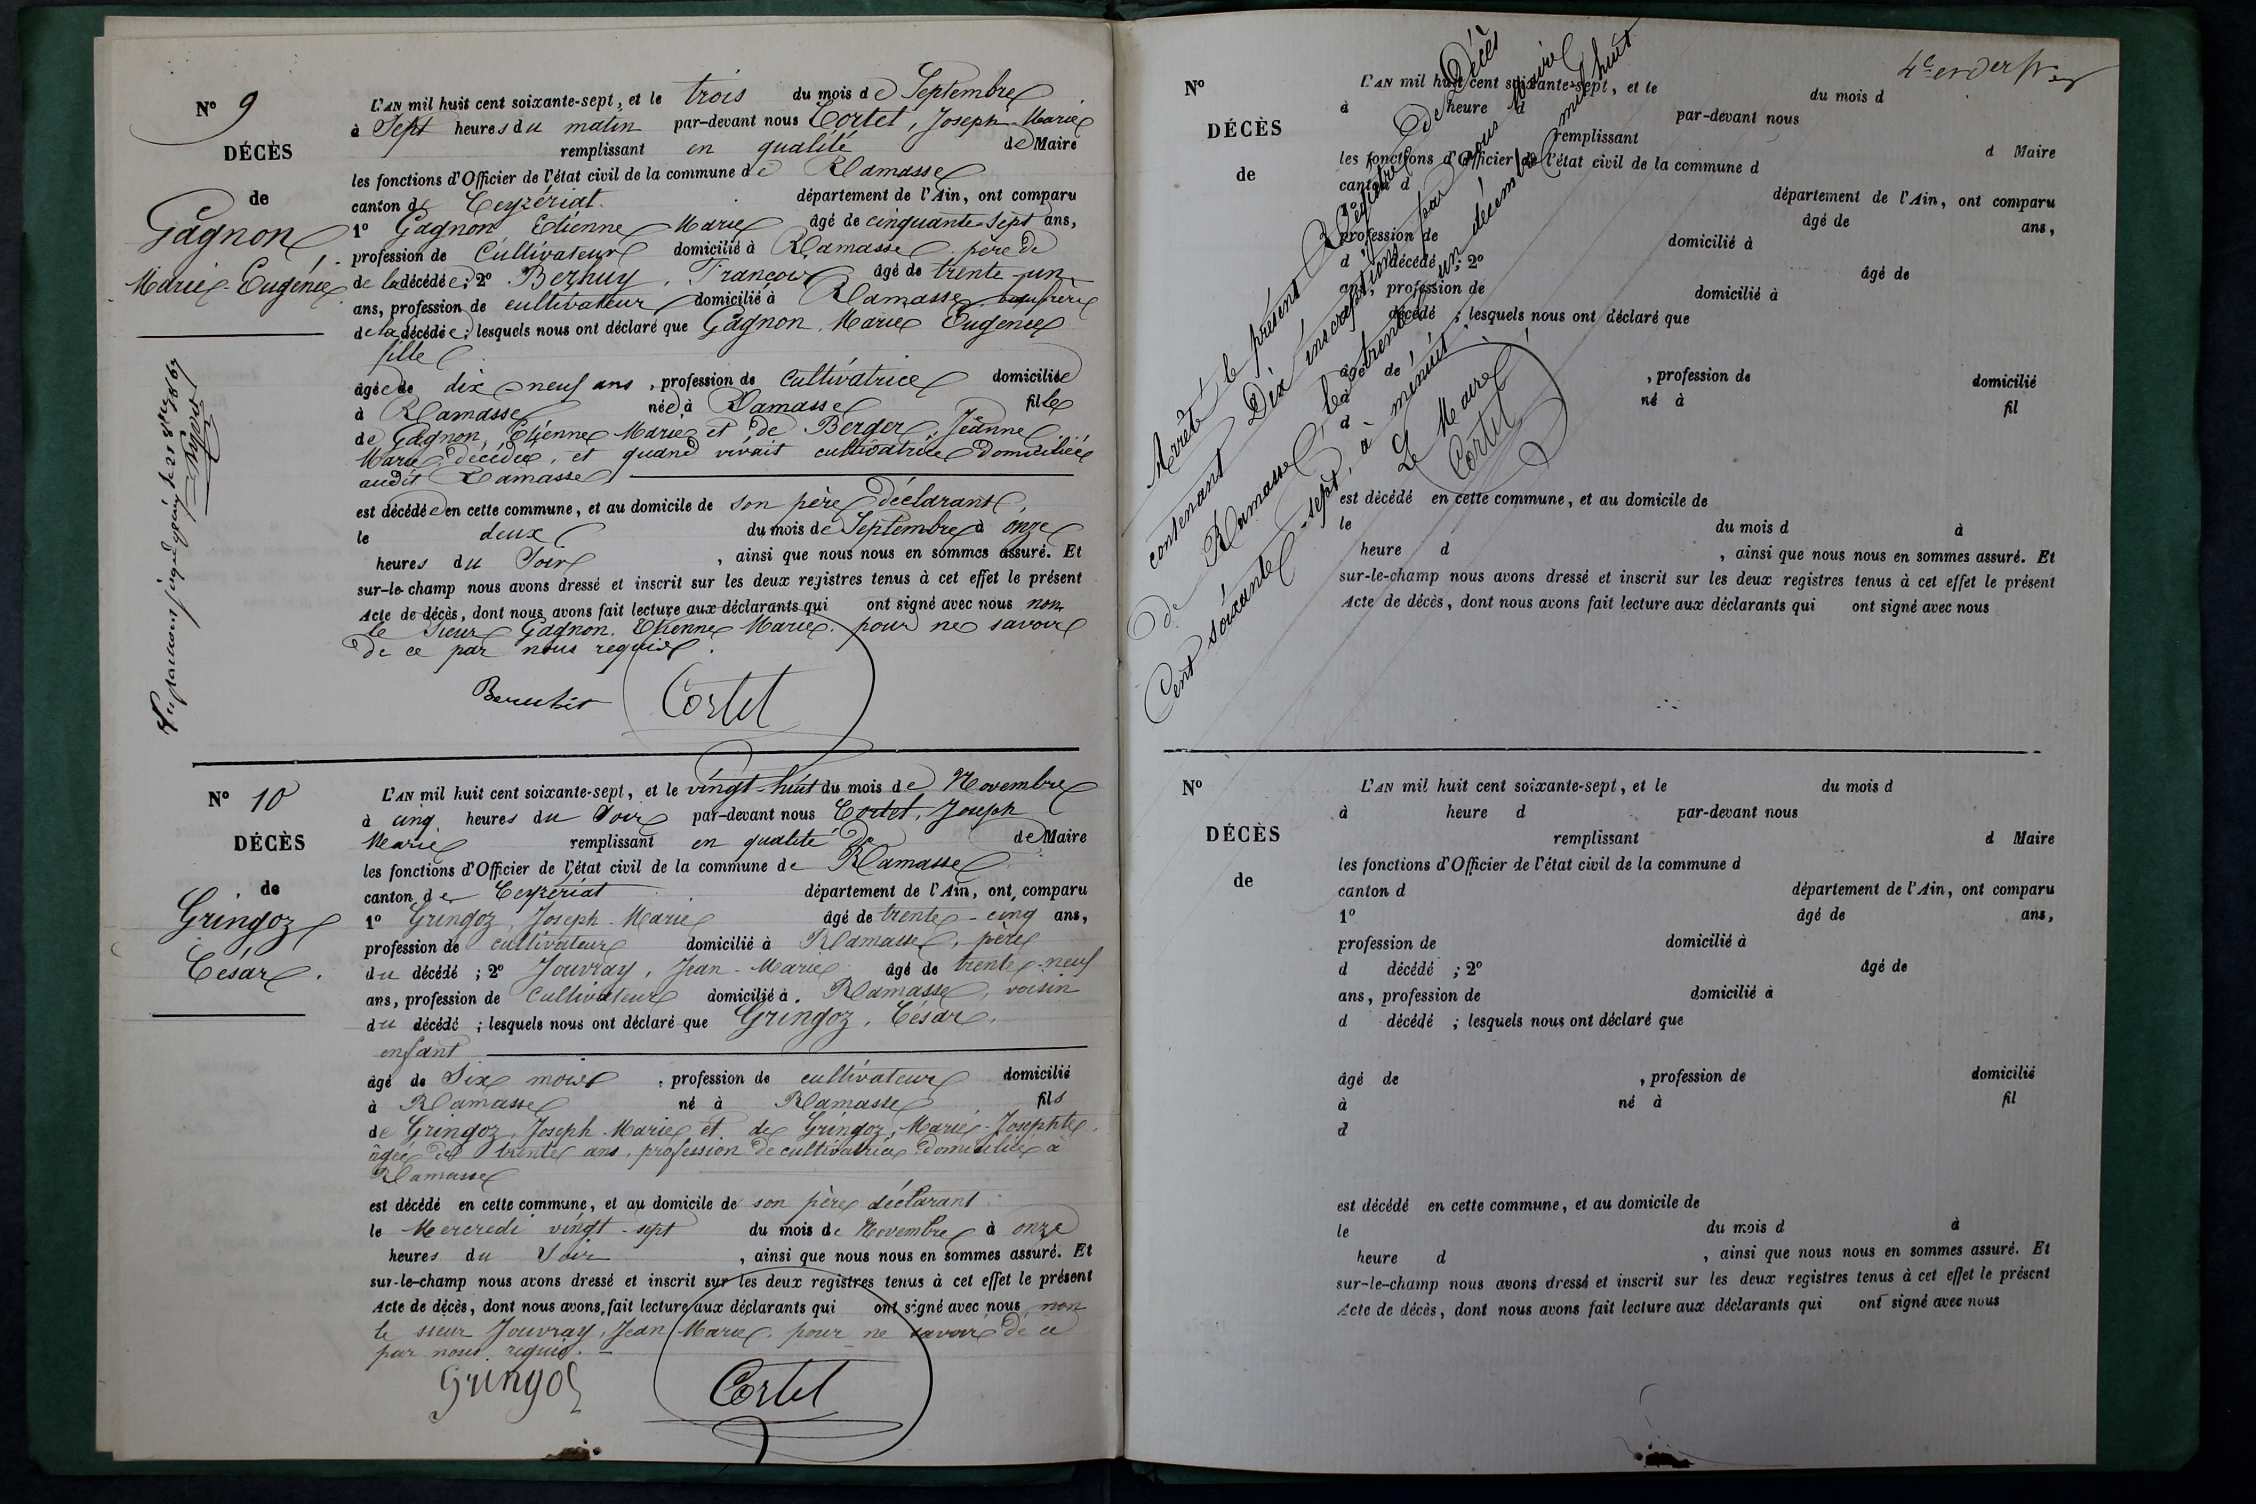 N° 9
DÉCÈS
de
Gagnon
Marie-Eugénie
L'AN mil huit cent soixante-sept, et le trois du mois de Septembre
à Sept heures du matin par-devant nous Cortet, Joseph-Marie
remplissant en qualité de Maire
les fonctions d'Officier de l'état civil de la commune de Ramasse
canton de Ceyzériat département de l'Ain, ont comparu
1° Gagnon Etienne Marie âgé de cinquante-sept ans,
profession de Cultivateur domicilié à Ramasse, père de
de la décédée; 2° Bernuy, François âgé de trente-un
ans, profession de cultivateur domicilié à Ramasse beaufrère
de la décédée; lesquels nous ont déclaré que Gagnon, Marie Eugénie
fille
âgée de dix-neuf ans, profession de Cultivatrice domiciliée
à Ramasse née à Ramasse fille
de Gagnon, Etienne Marie et de Berger, Jeanne
Marie, décédée, et quand vivait cultivatrice domiciliée
audit Ramasse
est décédée en cette commune, et au domicile de son père déclarant,
le deux du mois de Septembre à onze
heures du Soir, ainsi que nous nous en sommes assuré. Et
sur-le-champ nous avons dressé et inscrit sur les deux registres tenus à cet effet le présent
Acte de décès, dont nous avons fait lecture aux déclarants qui ont signé avec nous non
le sieur Gagnon. Etienne Marie. pour ne savoir
de ce par nous requis.
Cortet
N° 10
DÉCÈS
de
Gringoz
César.
L'AN mil huit cent soixante-sept, et le vingt-huit du mois de Novembre
à cinq heures du Soir par-devant nous Cortet, Joseph
Marie remplissant en qualité de de Maire
les fonctions d'Officier de l'état civil de la commune de Ramasse
canton de Ceyzériat département de l'Ain, ont comparu
1° Gringoz, Joseph-Marie âgé de trente-cinq ans,
profession de cultivateur domicilié à Ramasse, père
du décédé; 2° Jouvray, Jean-Marie âgé de trente-neuf
ans, profession de Cultivateur domicilié à Ramasse, voisin
du décédé; lesquels nous ont déclaré que Gringoz, César,
enfant
âgé de Six mois, profession de cultivateur domicilié
à Ramasse né à Ramasse fils
de Gringoz, Joseph-Marie et de Gringoz, Marie-Josephte,
âgée de trente ans, profession de cultivatrice domiciliée à
Ramasse
est décédé en cette commune, et au domicile de son père déclarant
le Mercredi vingt-sept du mois de Novembre à onze
heures du Soir, ainsi que nous nous en sommes assuré. Et
sur-le-champ nous avons dressé et inscrit sur les deux registres tenus à cet effet le présent
Acte de décès, dont nous avons fait lecture aux déclarants qui ont signé avec nous non
le sieur Jouvray, Jean Marie, pour ne savoir de ce
par nous requis.
Gringoz
Cortet
N°
DÉCÈS
de
L'AN mil huit cent soixante-sept, et le du mois d
à heure d par-devant nous
remplissant d Maire
les fonctions d'Officier de l'état civil de la commune d
canton d département de l'Ain, ont comparu
1° âgé de ans,
profession de domicilié à
d décédé; 2° âgé de
ans, profession de domicilié à
d décédé; lesquels nous ont déclaré que
âgé de, profession de domicilié
à né à fil
d
est décédé en cette commune, et au domicile de
le du mois d à
heure d, ainsi que nous nous en sommes assuré. Et
sur-le-champ nous avons dressé et inscrit sur les deux registres tenus à cet effet le présent
Acte de décès, dont nous avons fait lecture aux déclarants qui ont signé avec nous
Arrêté le présent Registre de Décès
contenant Dix inscriptions par nous Maire
de Ramasse, le trente un décembre mil huit
Cent soixante-sept, à minuit.
Le Maire
Cortet
N°
DÉCÈS
de
L'AN mil huit cent soixante-sept, et le du mois d
à heure d par-devant nous
remplissant d Maire
les fonctions d'Officier de l'état civil de la commune d
canton d département de l'Ain, ont comparu
1° âgé de ans,
profession de domicilié à
d décédé; 2° âgé de
ans, profession de domicilié à
d décédé; lesquels nous ont déclaré que
âgé de, profession de domicilié
à né à fil
d
est décédé en cette commune, et au domicile de
le du mois d à
heure d, ainsi que nous nous en sommes assuré. Et
sur-le-champ nous avons dressé et inscrit sur les deux registres tenus à cet effet le présent
Acte de décès, dont nous avons fait lecture aux déclarants qui ont signé avec nous